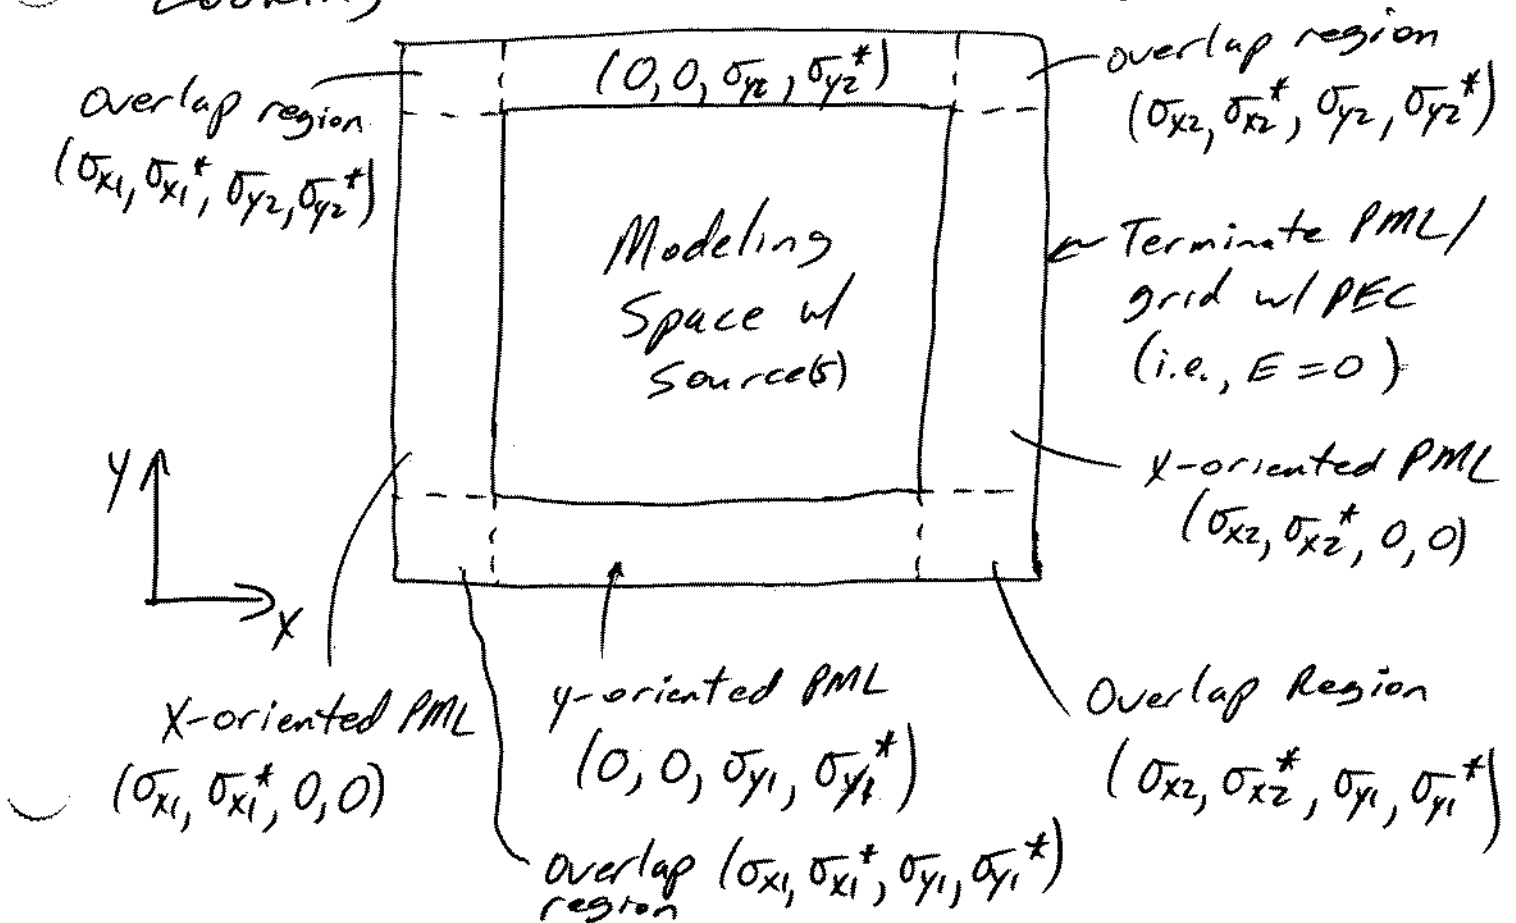 Overlap region
(σx1, σx1*, σy2, σy2*)
(0, 0, σy2, σy2*)
overlap region
(σx2, σx2*, σy2, σy2*)
Modeling
Space w/
Source(s)
Terminate PML/
grid w/ PEC
(i.e., E = 0)
X-oriented PML
(σx2, σx2*, 0, 0)
y
x
X-oriented PML
(σx1, σx1*, 0, 0)
y-oriented PML
(0, 0, σy1, σy1*)
Overlap Region
(σx2, σx2*, σy1, σy1*)
overlap (σx1, σx1*, σy1, σy1*)
region